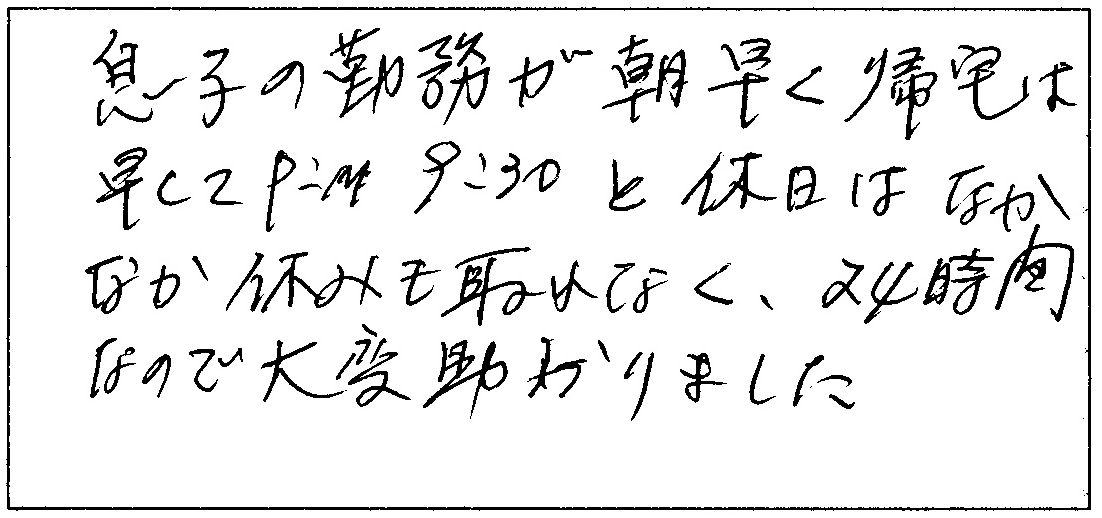 息子の勤務が朝早く帰宅は
早くて 9:30 と休日はなか
なか休みも取れなく、24時間
なので大変助かりました